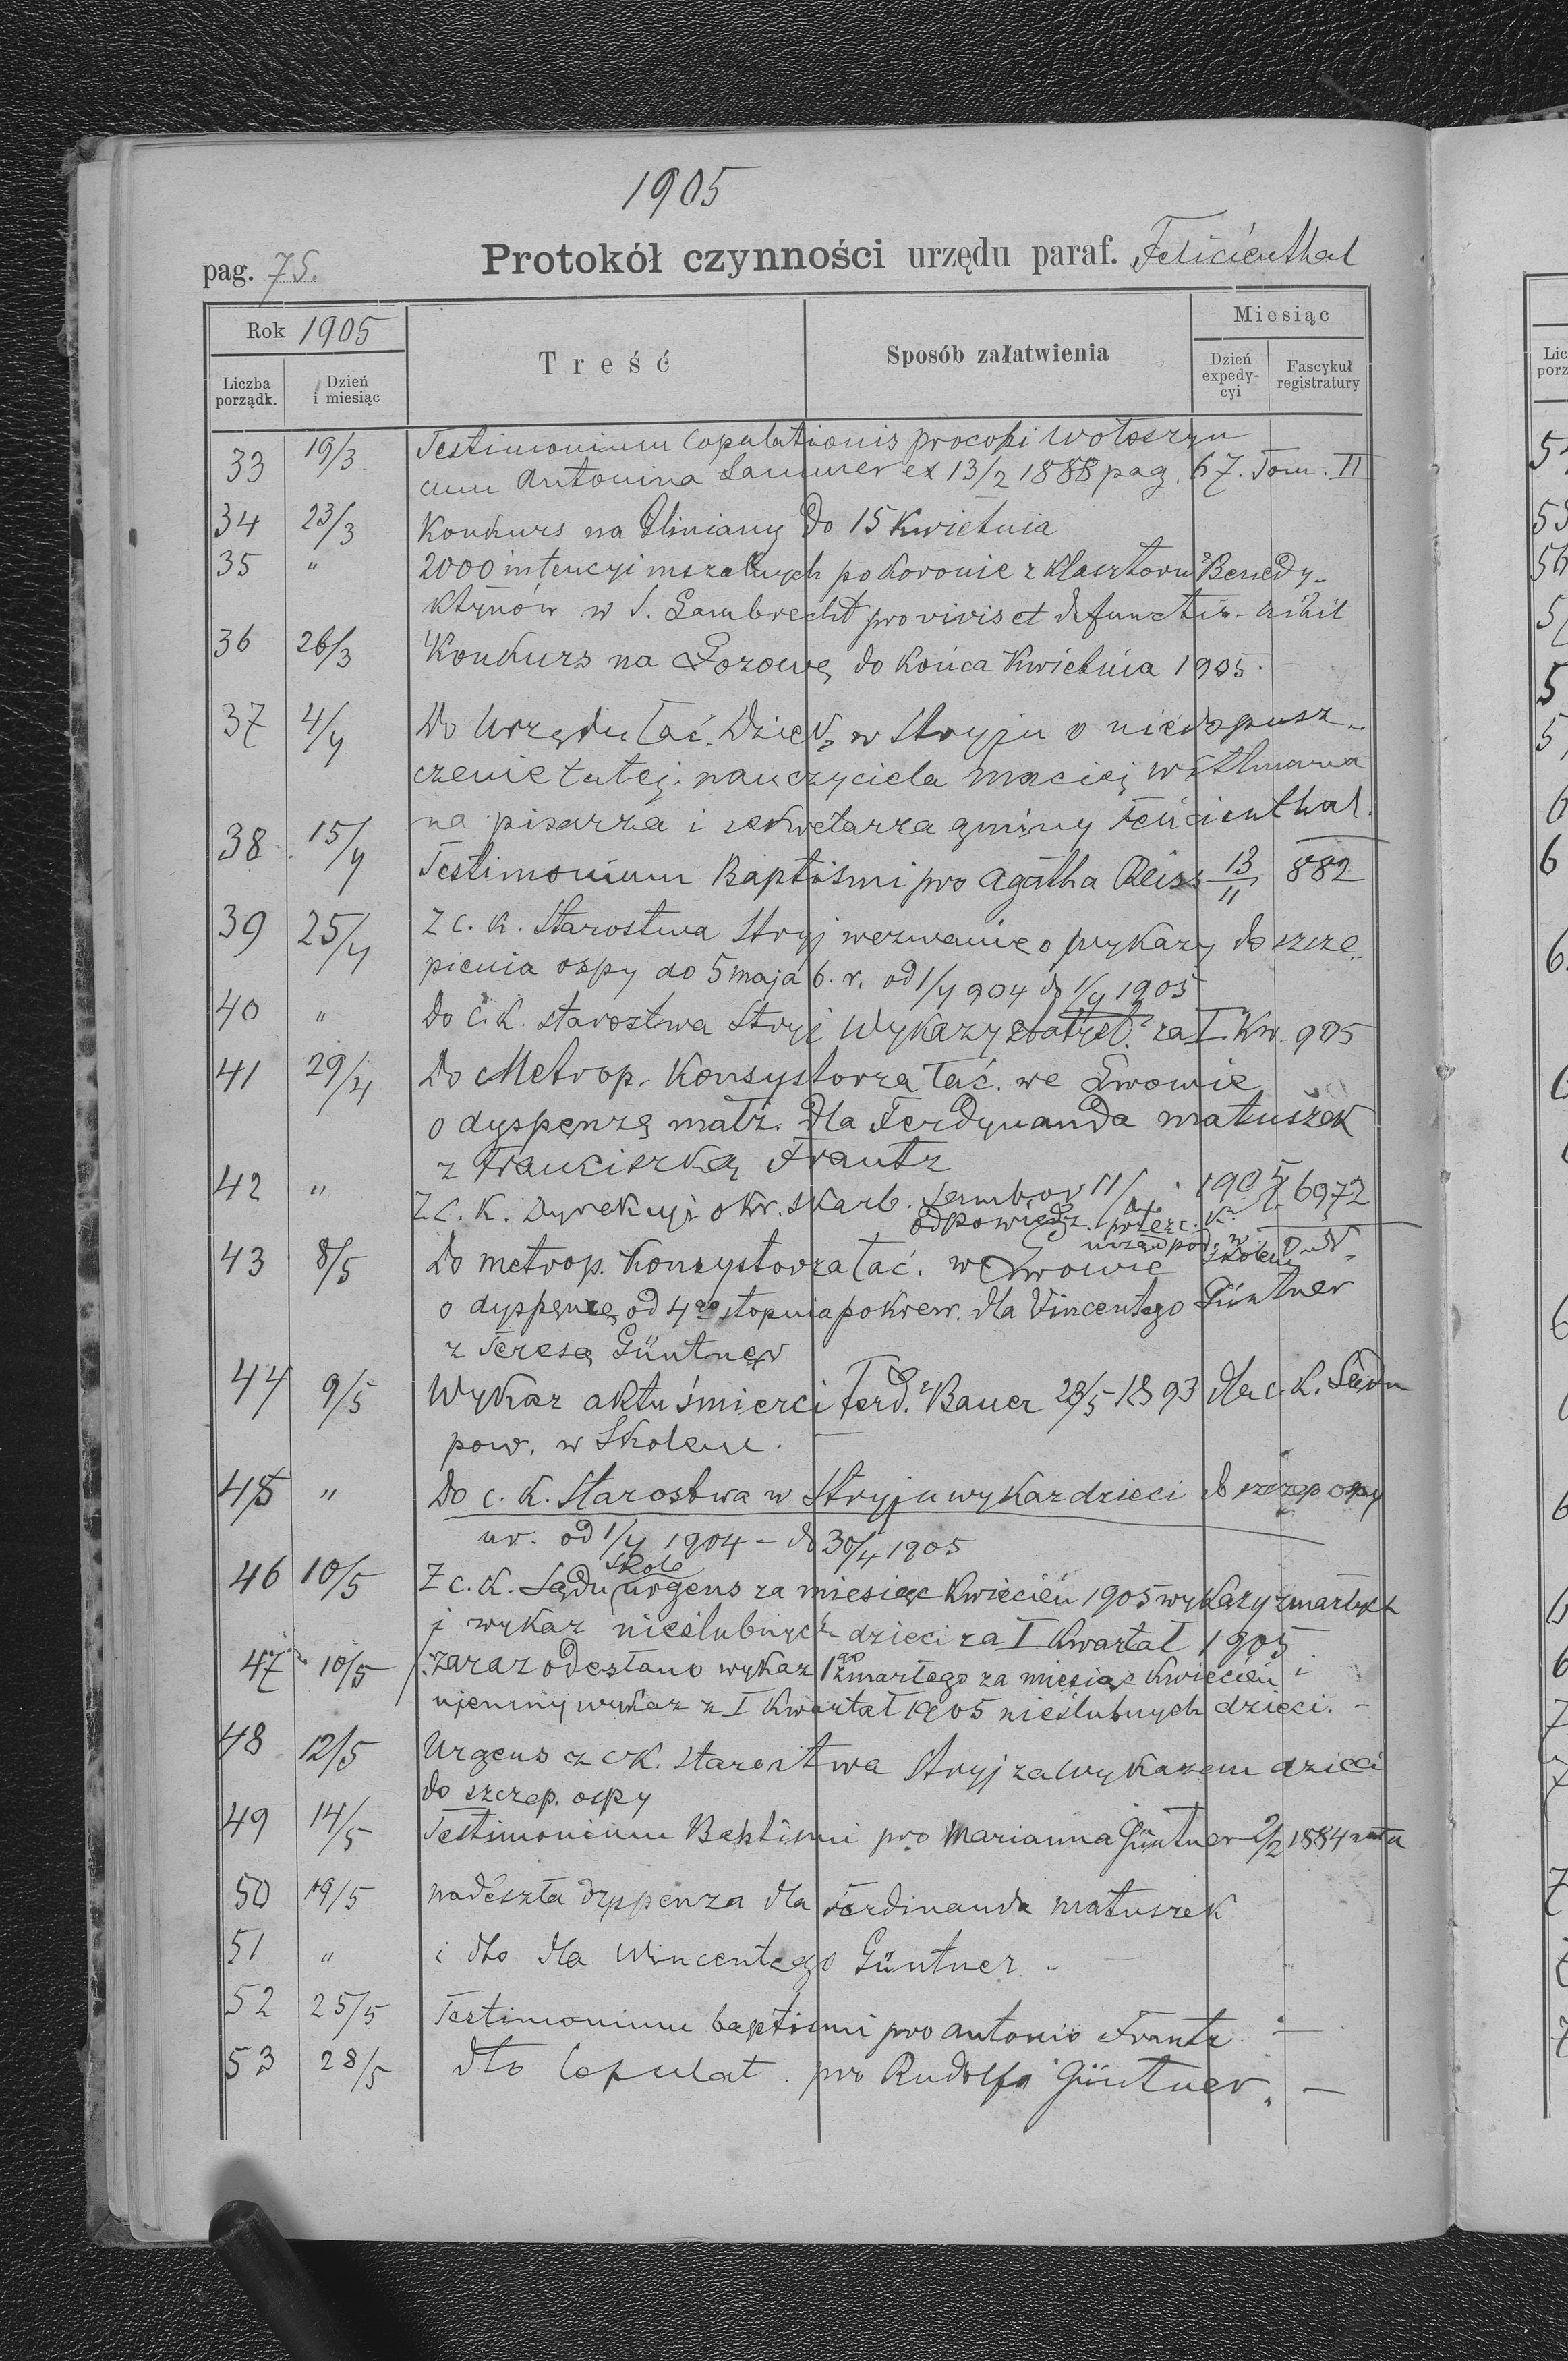 1905
pag. 75. Protokół czynności urzędu paraf. Felicienthal
Rok 1905 Treść Sposób załatwienia Miesiąc
Liczba porządk. Dzień i miesiąc Dzień expedycyi Fascykuł registratury
33 19/3 Testimonium Copulationis Procopi Wołoszyn
cum Antonina Sammer ex 13/2 1888 pag. 67. Tom. II
34 23/3 Konkurs na Gliniany do 15 Kwietnia
35 " 2000 intencyi mszalnych po Koronie z Klasztoru Benedy-
ktynów w S. Lambrecht pro vivis et defunctis - nihil
36 26/3 Konkurs na Łozowę do końca Kwietnia 1905.
37 4/4 Do Urzędu łać. Dziek. w Stryju o niedopusz-
czenie tutej. nauczyciela Maciej Wittmana
na pisarza i sekretarza gminy Felicienthal.
38 15/4 Testimonium Baptismi pro Agatha Reiss 13/11 882
39 25/4 Z c. k. Starostwa Stryj wezwanie o wykazy do szcze-
pienia ospy do 5 maja b. r. od 1/4 904 do 1/4 1905
40 " Do c. k. starostwa Stryj Wykazy statyst. za I Kw. 905
41 29/4 Do Metrop. Konsystorza łać. we Lwowie
o dyspenzę małż. dla Ferdynanda Matuszek
z Franciszką Frantz
42 " Z c. K. Dyrekcyi okr. skarb. Sambor 11/4 1905 L. 6972
odpowiedź przez c. k.
urząd pod. w Skolem
43 8/5 Do metrop. Konsystorza łać. we Lwowie
o dyspenzę od 4go stopnia pokrew. dla Vincentego Güntner
z Teresą Güntner
44 9/5 Wykaz aktu śmierci Ferd. Bauer 23/5 1893 dla c. k. Sądu
pow. w Skolem.
45 " Do c. k. Starostwa w Stryju wykaz dzieci do szczep ospy
ur. od 1/4 1904 - do 30/4 1905
46 10/5 Z c. k. Sądu Skole urgens za miesiąc Kwiecień 1905 wykazy zmarłych
i wykaz nieślubnych dzieci za I Kwartał 1905
47 10/5 zaraz odesłano wykaz 1go zmarłego za miesiąc Kwiecień i
ujemny wykaz z I Kwartał 1905 nieślubnych dzieci. -
48 12/5 Urgens z c. k. Starostwa Stryj za wykazem dzieci
do szczep. ospy
49 14/5 Testimonium Baptismi pro Marianna Güntner 2/2 1884 nata
50 19/5 nadeszła dyspenza dla Ferdinanda Matuszek
51 " i dto dla Wincentego Güntner. -
52 25/5 Testimonium baptismi pro Antonio Frantz -
53 28/5 dto Copulat. pro Rudolfo Güntner. -